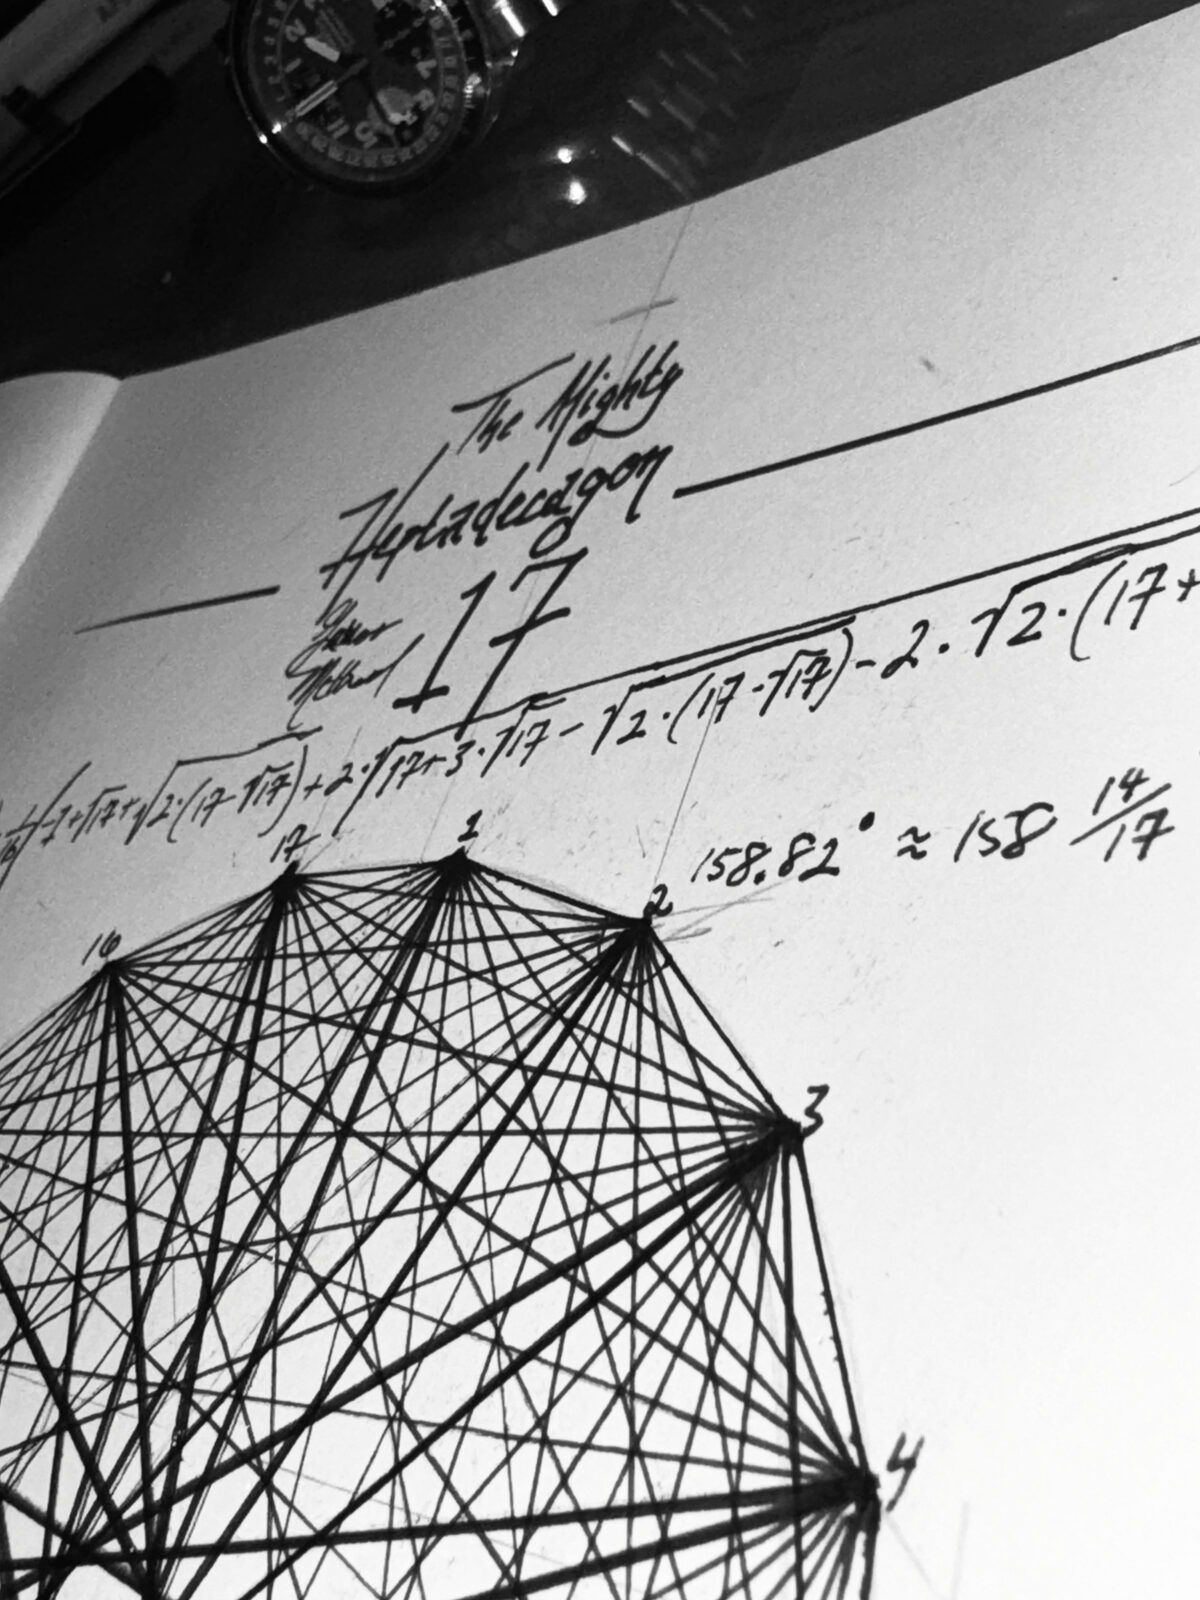 The Mighty
Heptadecagon
by
17
-1+√17+√2·(17-√17)+2·√17+3·√17-√2·(17-√17)-2·√2·(17+
158.82° ≈ 158 14/17
16
17
1
2
3
4